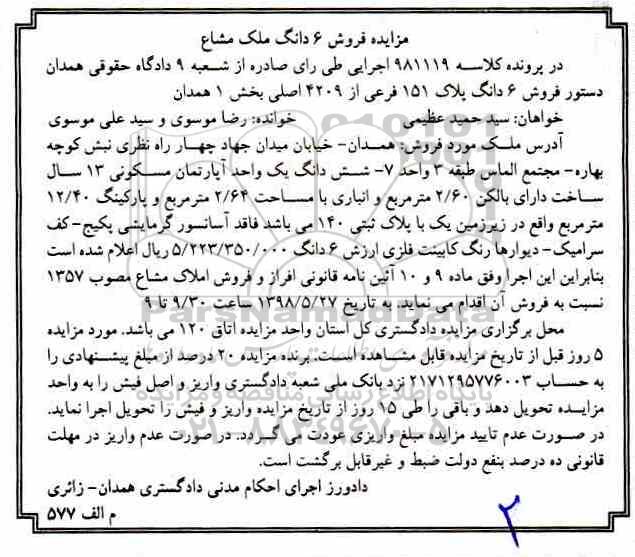 مزایده فروش ۶ دانگ ملک مشاع
در پرونده کلاسه ۹۸۱۱۱۹ اجرایی طی رای صادره از شعبه ۹ دادگاه حقوقی همدان
دستور فروش ۶ دانگ پلاک ۱۵۱ فرعی از ۴۲۰۹ اصلی بخش ۱ همدان
خواهان: سید حمید عظیمی خوانده: رضا موسوی و سید علی موسوی
آدرس ملک مورد فروش: همدان- خیابان میدان جهاد چهار راه نظری نبش کوچه
بهاره- مجتمع الماس طبقه ۳ واحد ۷- شش دانگ یک واحد آپارتمان مسکونی ۱۳ سال
ساخت دارای بالکن ۲/۶۰ مترمربع و انباری با مساحت ۲/۶۴ مترمربع و پارکینگ ۱۲/۴۰
مترمربع واقع در زیرزمین یک با پلاک ثبتی ۱۴۰ می باشد فاقد آسانسور گرمایشی پکیج-کف
سرامیک- دیوارها رنگ کابینت فلزی ارزش ۶ دانگ ۵/۲۲۳/۳۵۰/۰۰۰ ریال اعلام شده است
بنابراین این اجرا وفق ماده ۹ و ۱۰ آئین نامه قانونی افراز و فروش املاک مشاع مصوب ۱۳۵۷
نسبت به فروش آن اقدام می نماید. به تاریخ ۱۳۹۸/۵/۲۷ ساعت ۹/۳۰ تا ۹
محل برگزاری مزایده دادگستری کل استان واحد مزایده اتاق ۱۲۰ می باشد. مورد مزایده
۵ روز قبل از تاریخ مزایده قابل مشاهده است. برنده مزایده ۲۰ درصد از مبلغ پیشنهادی را
به حساب ۲۱۷۱۲۹۵۷۷۶۰۰۳ نزد بانک ملی شعبه دادگستری واریز و اصل فیش را به واحد
مزایده تحویل دهد و باقی را طی ۱۵ روز از تاریخ مزایده واریز و فیش را تحویل اجرا نماید.
در صورت عدم تایید مزایده مبلغ واریزی عودت می گردد. در صورت عدم واریز در مهلت
قانونی ده درصد بنفع دولت ضبط و غیرقابل برگشت است.
دادورز اجرای احکام مدنی دادگستری همدان- زائری
م الف ۵۷۷
۲
ParsNamadData
پایگاه اطلاع رسانی مناقصه و مزایده